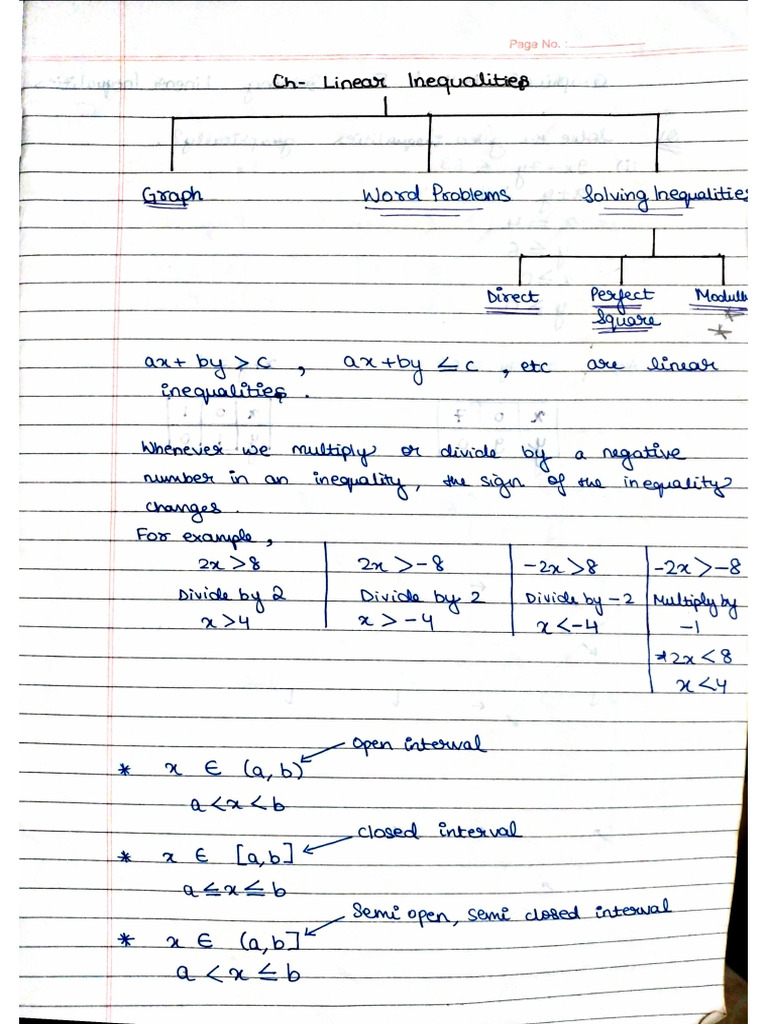 Page No. :
Ch- Linear Inequalities
Graph Word Problems Solving Inequalities
Direct Perfect Square Modulu
ax + by > c , ax + by ≤ c , etc are linear
inequalities .
Whenever we multiply or divide by a negative
number in an inequality, the sign of the inequality
changes .
For example,
2x > 8 2x > -8 -2x > 8 -2x > -8
Divide by 2 Divide by 2 Divide by -2 Multiply by
x > 4 x > -4 x < -4 -1
2x < 8
x < 4
Open interval
* x ∈ (a, b)
a < x < b
closed interval
* x ∈ [a, b]
a ≤ x ≤ b
Semi open, semi closed interval
* x ∈ (a, b]
a < x ≤ b